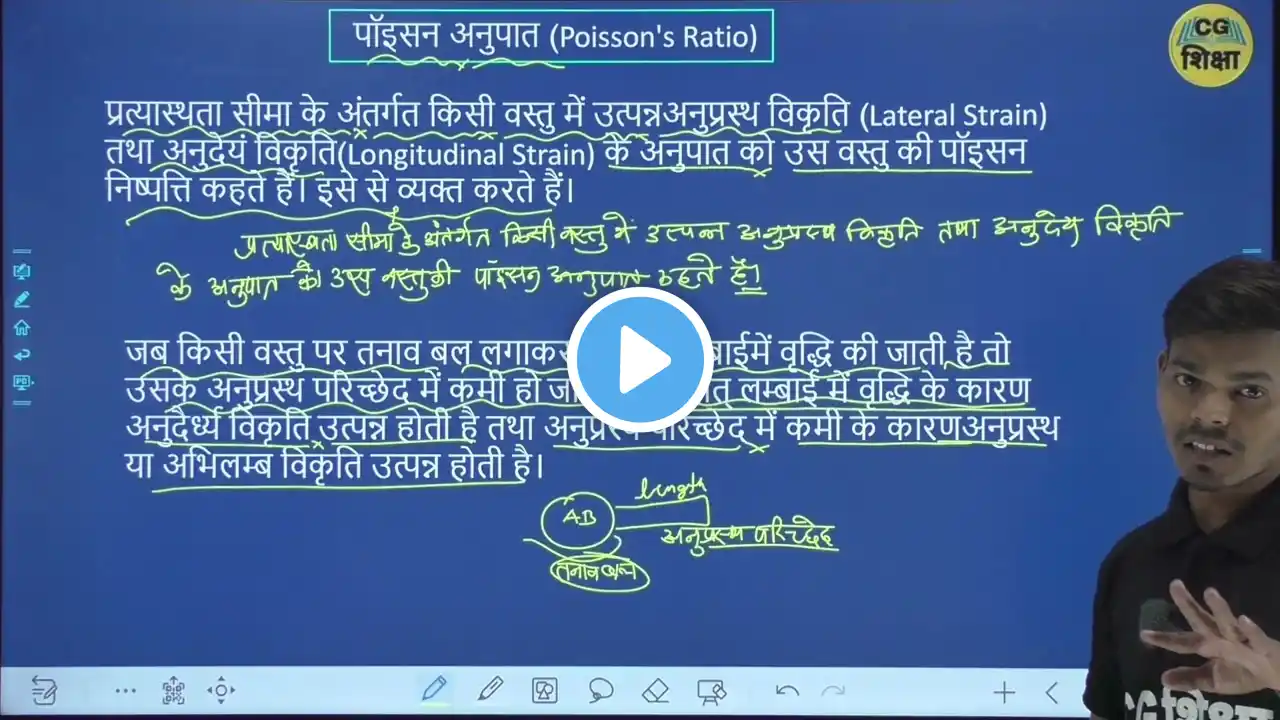 पॉइसन अनुपात (Poisson's Ratio)
CG
शिक्षा
प्रत्यास्थता सीमा के अंतर्गत किसी वस्तु में उत्पन्नअनुप्रस्थ विकृति (Lateral Strain)
तथा अनुदेयं विकृति(Longitudinal Strain) के अनुपात को उस वस्तु की पॉइसन
निष्पत्ति कहते हैं। इसे से व्यक्त करते हैं।
प्रत्यास्थता सीमा के अंतर्गत किसी वस्तु में उत्पन्न अनुप्रस्थ विकृति तथा अनुदेर्य विकृति
के अनुपात को उस वस्तु की पॉइसन अनुपात कहते हैं।
जब किसी वस्तु पर तनाव बल लगाकर बाईमें वृद्धि की जाती है तो
उसके अनुप्रस्थ परिच्छेद में कमी हो जा त् लम्बाई में वृद्धि के कारण
अनुदैर्ध्य विकृति उत्पन्न होती है तथा अनुप्रस्थ परिच्छेद में कमी के कारणअनुप्रस्थ
या अभिलम्ब विकृति उत्पन्न होती है।
length
AB
अनुप्रस्थ परिच्छेद
तनाव बल